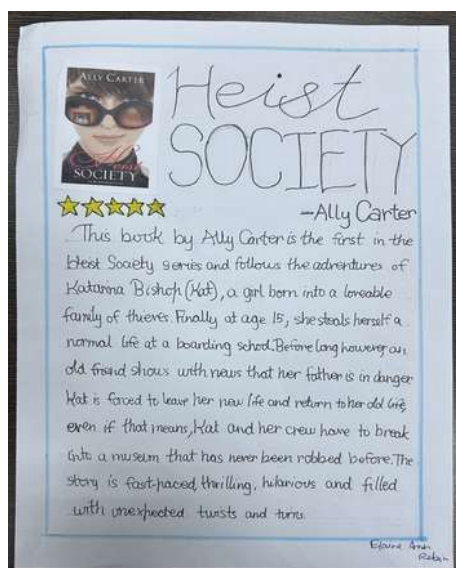 ALLY CARTER
Heist
SOCIETY
Heist
SOCIETY
-Ally Carter
This book by Ally Carter is the first in the
Heist Society series and follows the adventures of
Katarina Bishop (Kat), a girl born into a loveable
family of thieves. Finally at age 15, she steals herself a
normal life at a boarding school. Before long however an
old friend shows with news that her father is in danger
Kat is forced to leave her new life and return to her old life,
even if that means, Kat and her crew have to break
into a museum that has never been robbed before. The
story is fast-paced, thrilling, hilarious and filled
with unexpected twists and turns.
Elaina Ann